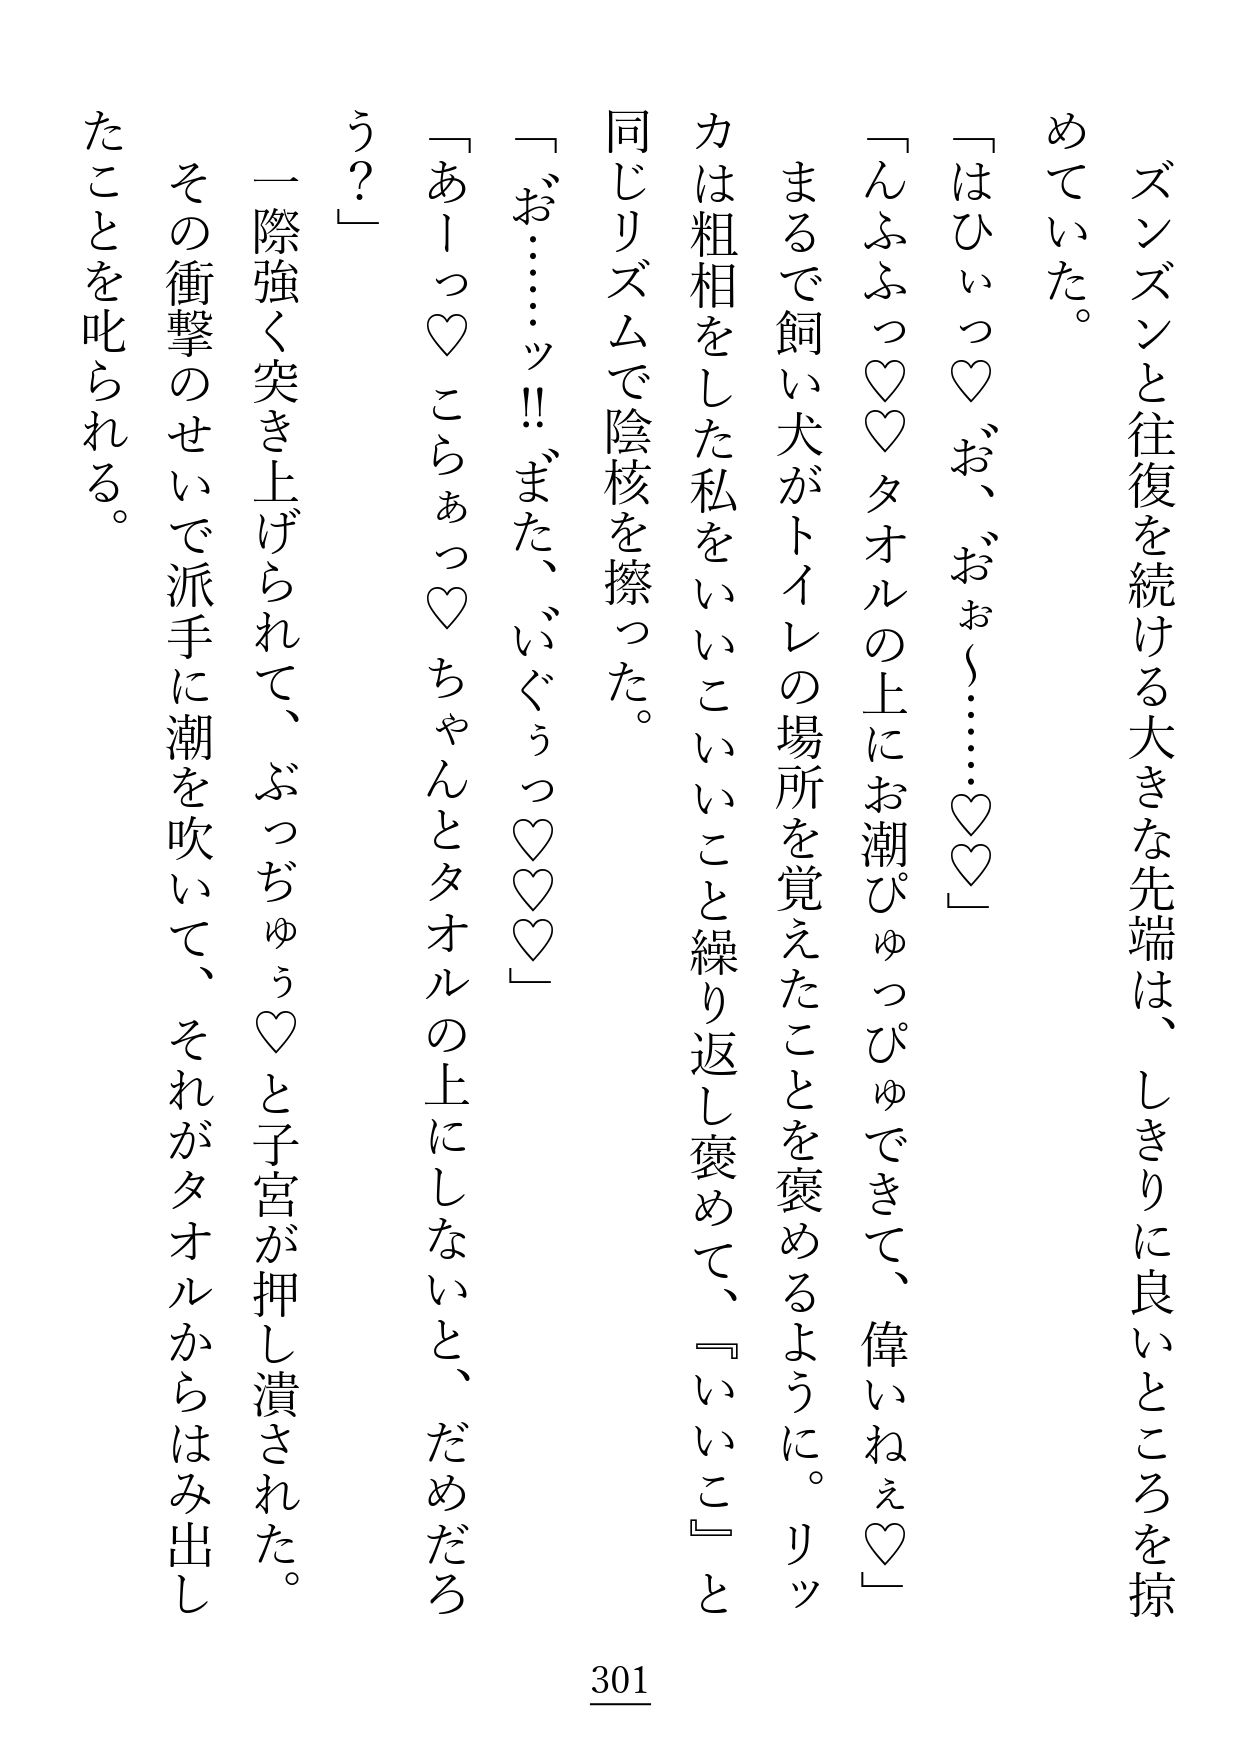 ズンズンと往復を続ける大きな先端は、しきりに良いところを掠
めていた。
「はひぃっ♡ お゛、お゛ぉ～……♡♡」
「んふふっ♡♡タオルの上にお潮ぴゅっぴゅできて、偉いねぇ♡」
まるで飼い犬がトイレの場所を覚えたことを褒めるように。リッ
カは粗相をした私をいいこいいこと繰り返し褒めて、『いいこ』と
同じリズムで陰核を擦った。
「お゛……ッ‼ま゛た、い゛ぐぅっ♡♡♡」
「あーっ♡ こらぁっ♡ ちゃんとタオルの上にしないと、だめだろ
う？」
一際強く突き上げられて、ぶっぢゅぅ♡と子宮が押し潰された。
その衝撃のせいで派手に潮を吹いて、それがタオルからはみ出し
たことを叱られる。
301